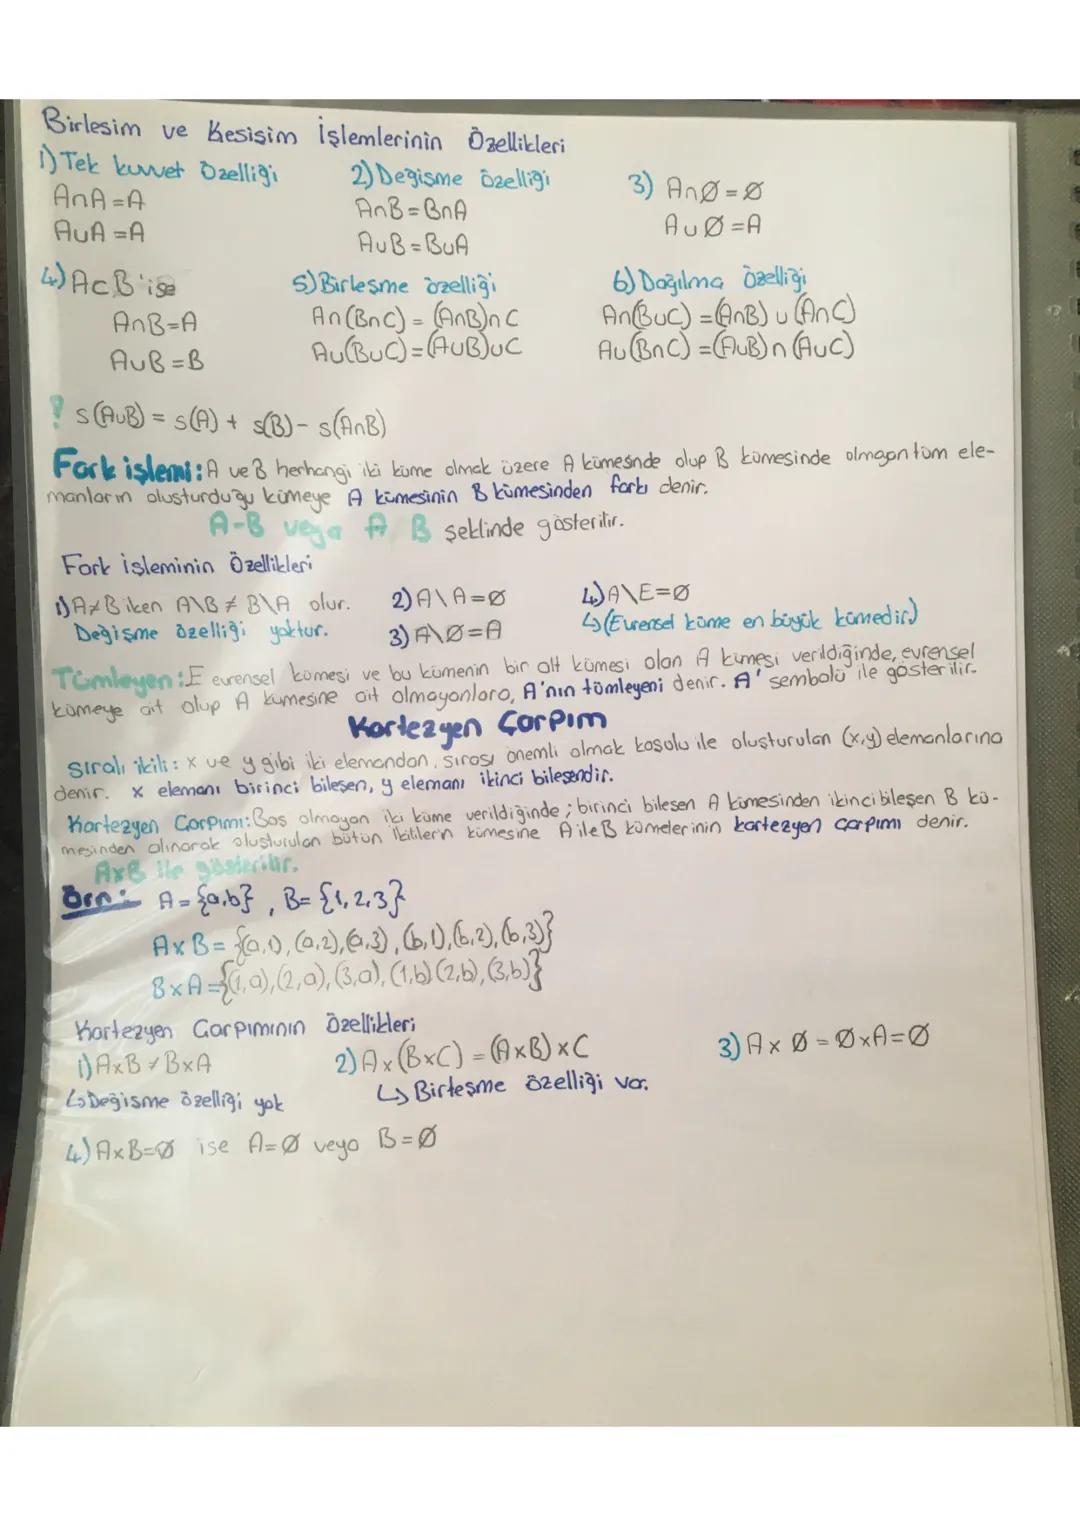 Birleşim ve Kesişim İşlemlerinin Özellikleri
1) Tek kuvvet Özelliği
A∩A=A
A∪A=A
2) Değişme özelliği
A∩B=B∩A
A∪B=B∪A
3) A∩Ø=Ø
A∪Ø=A
4) A⊂B'ise
A∩B=A
A∪B=B
5) Birleşme özelliği
A∩(B∩C) = (A∩B)∩C
A∪(B∪C)=(A∪B)∪C
6) Dağılma özelliği
A∩(B∪C) =(A∩B) ∪ (A∩C)
A∪(B∩C) =(A∪B)∩(A∪C)
! s(A∪B) = s(A) + s(B) - s(A∩B)
Fark işlemi: A ve B herhangi iki küme olmak üzere A kümesinde olup B kümesinde olmayan tüm ele-
manların oluşturduğu kümeye A kümesinin B kümesinden farkı denir.
A-B veya A B şeklinde gösterilir.
Fark işleminin Özellikleri
1) A≠B iken A\B ≠ B\A olur.
Değişme özelliği yoktur.
2) A\A=Ø
3) A\Ø=A
4) A\E=Ø
↳(Evrensel küme en büyük kümedir.)
Tümleyen: E evrensel kümesi ve bu kümenin bir alt kümesi olan A kümesi verildiğinde, evrensel
kümeye ait olup A kümesine ait olmayanlara, A'nın tümleyeni denir. A' sembolü ile gösterilir.
Kartezyen Çarpım
Sıralı ikili: x ve y gibi iki elemandan, sırası önemli olmak koşulu ile oluşturulan (x,y) elemanlarına
denir. x elemanı birinci bileşen, y elemanı ikinci bileşendir.
Kartezyen Çarpımı: Boş olmayan iki küme verildiğinde; birinci bileşen A kümesinden ikinci bileşen B kü-
mesinden alınarak oluşturulan bütün ikililerin kümesine A ile B kümelerinin kartezyen çarpımı denir.
AxB ile gösterilir.
Örn: A={a,b}, B={1,2,3}
AxB= {(a,1), (a,2),(a,3), (b,1),(b,2),(b,3)}
BxA={(1,a),(2,a),(3,a),(1,b)(2,b),(3,b)}
Kartezyen Çarpımının Özellikleri
1) AxB≠BxA
↳Değişme özelliği yok
2) Ax(BxC) = (AxB)xC
↳ Birleşme özelliği var.
3) Ax Ø = ØxA=Ø
4) AxB=Ø ise A=Ø veya B=Ø